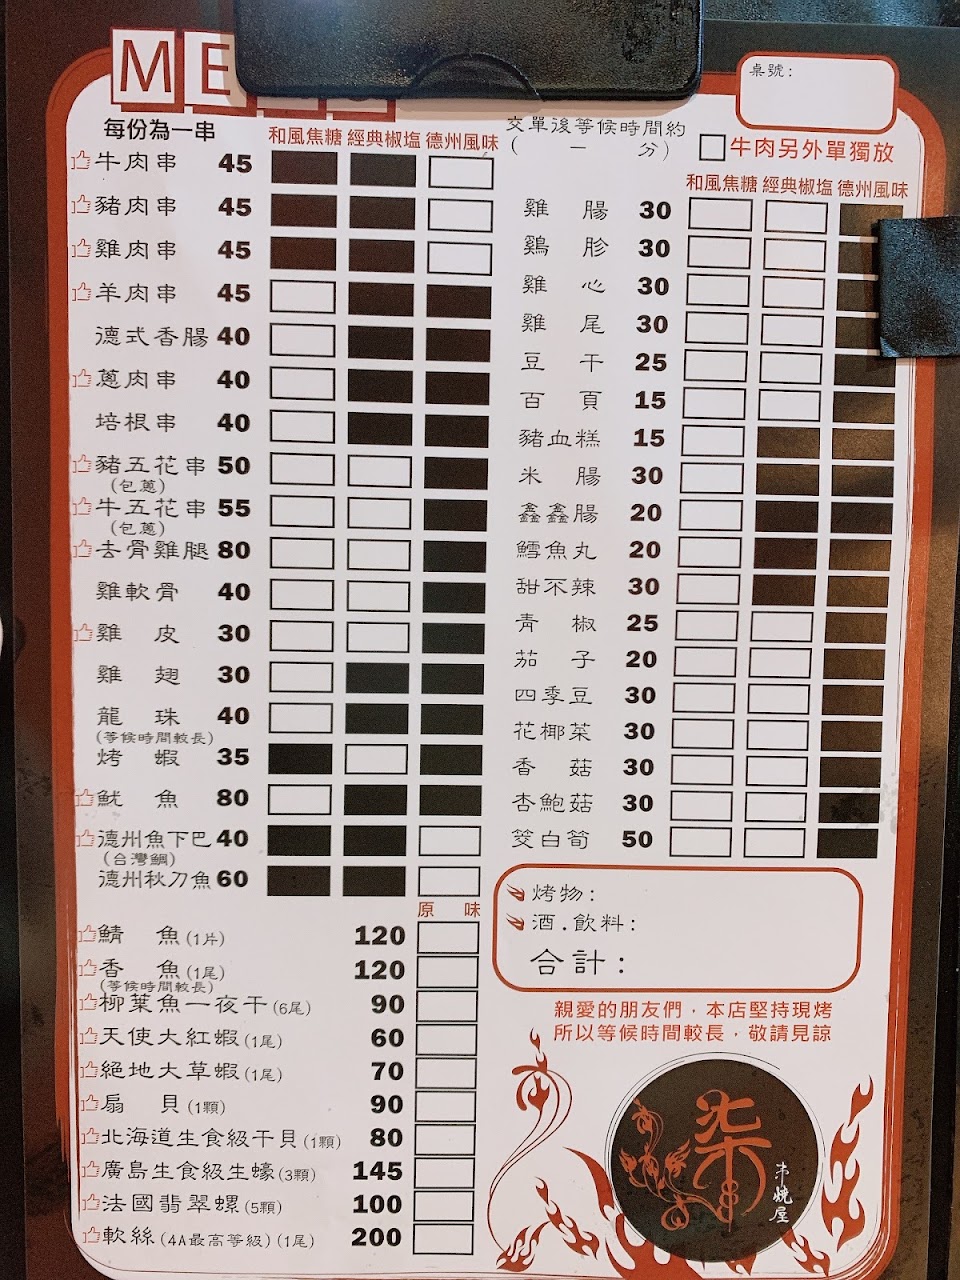 ME
每份為一串
和風焦糖 經典椒塩 德州風味
牛肉串 45
豬肉串 45
雞肉串 45
羊肉串 45
德式香腸 40
蔥肉串 40
培根串 40
豬五花串 50
(包蔥)
牛五花串 55
(包蔥)
去骨雞腿 80
雞軟骨 40
雞皮 30
雞翅 30
龍珠 40
(等候時間較長)
烤蝦 35
魷魚 80
德州魚下巴 40
(台灣鯛)
德州秋刀魚 60
原味
鯖魚(1片) 120
香魚(1尾) 120
(等候時間較長)
柳葉魚一夜干(6尾) 90
天使大紅蝦(1尾) 60
絕地大草蝦(1尾) 70
扇貝(1顆) 90
北海道生食級干貝(1顆) 80
廣島生食級生蠔(3顆) 145
法國翡翠螺(5顆) 100
軟絲(4A最高等級)(1尾) 200
桌號:
交單後等候時間約
( — 分)
牛肉另外單獨放
和風焦糖 經典椒塩 德州風味
雞腸 30
鷄胗 30
雞心 30
雞尾 30
豆干 25
百頁 15
豬血糕 15
米腸 30
鑫鑫腸 20
鱈魚丸 20
甜不辣 30
青椒 25
茄子 20
四季豆 30
花椰菜 30
香菇 30
杏鮑菇 30
筊白筍 50
烤物:
酒.飲料:
合計:
親愛的朋友們，本店堅持現烤
所以等候時間較長，敬請見諒
柒
串燒屋